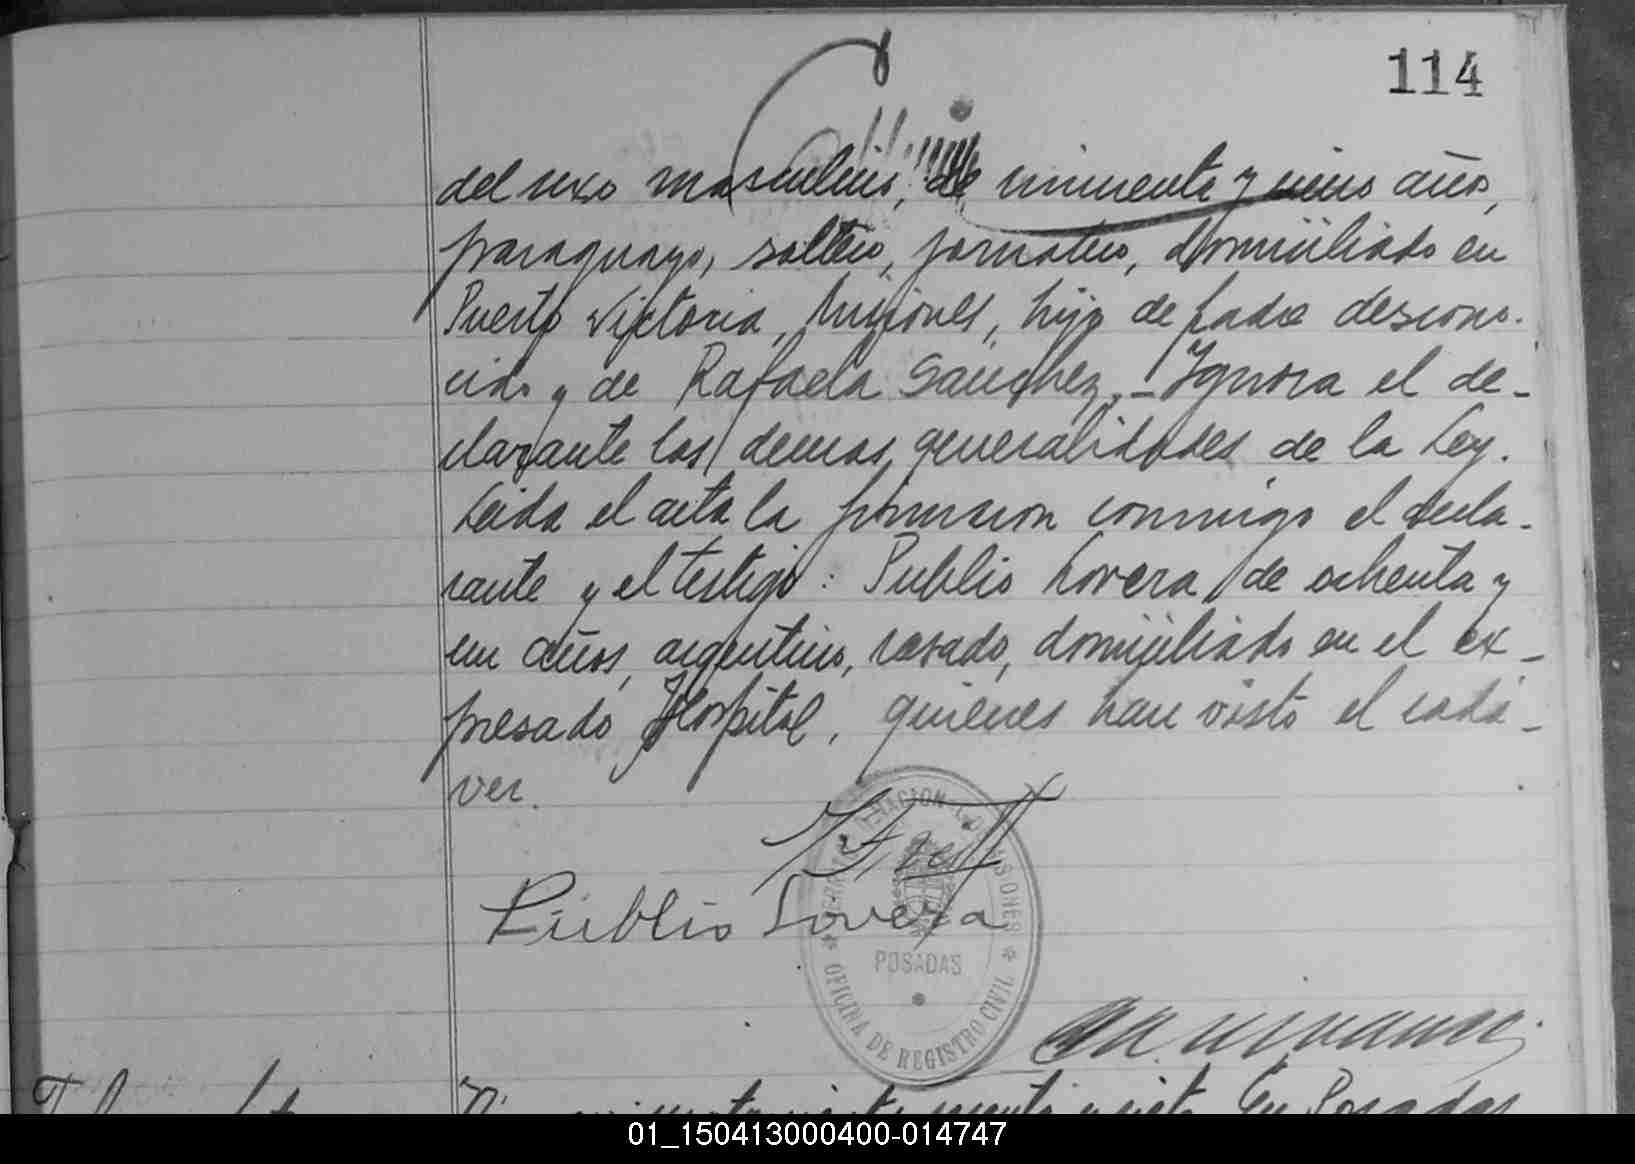 114
del sexo masculino, de cincuenta y cinco años,
paraguayo, soltero, jornalero, domiciliado en
Puerto Victoria, Misiones, hijo de padre descono-
cido y de Rafaela Sanchez.- Ignora el de-
clarante las demas generalidades de la Ley.
Leida el acta la firmaron conmigo el decla-
rante y el testigo: Publio Lovera, de ochenta y
un años, argentino, casado, domiciliado en el ex-
presado Hospital, quienes han visto el cadá-
ver.
Publio Lovera
NACIONAL DE MISIONES
POSADAS
OFICINA DE REGISTRO CIVIL
En Posadas
01_150413000400-014747